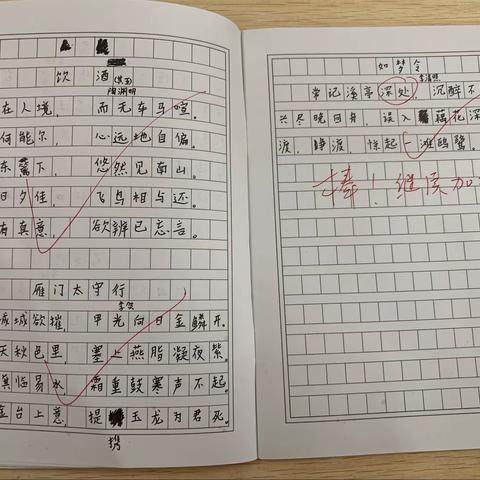 饮酒(其五)
陶渊明
在人境, 而无车马喧。
何能尔, 心远地自偏。
东篱下, 悠然见南山。
日夕佳, 飞鸟相与还。
有真意, 欲辨已忘言。
雁门太守行
李贺
城欲摧, 甲光向日金鳞开。
天秋色里, 塞上燕脂凝夜紫。
旗临易水, 霜重鼓寒声不起
金台上意, 提玉龙为君死。
携
如梦令
李清照
常记溪亭深处, 沉醉不
兴尽晚回舟, 误入藕花深
渡, 争渡, 惊起一滩鸥鹭。
棒!继续加